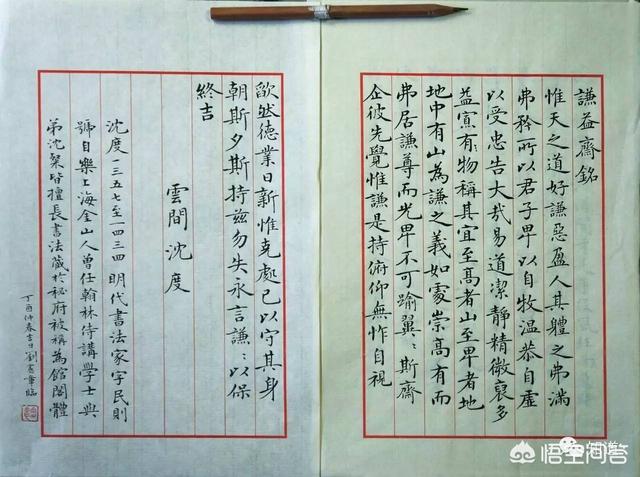 謙益齋銘
惟天之道好謙惡盈人其體之弗滿
弗矜所以君子卑以自牧溫恭自虛
以受忠告大哉易道潔静精微裒多
益寡有物稱其宜至高者山至卑者地
地中有山為謙之義如處崇高有而
弗居謙尊而光卑不可踰翼：斯齋
企彼先覺惟謙是持俯仰無怍自視
欿然德業日新惟克處己以守其身
朝斯夕斯持玆勿失永言謙：以保
終吉
雲間沈度
沈度一三五七至一四三四明代書法家字民則
號自樂上海金山人曾任翰林侍講學士與
弟沈粲皆擅長書法藏於秘府被稱為館閣體
丁酉仲春吉日劉憲章臨
悟空问答